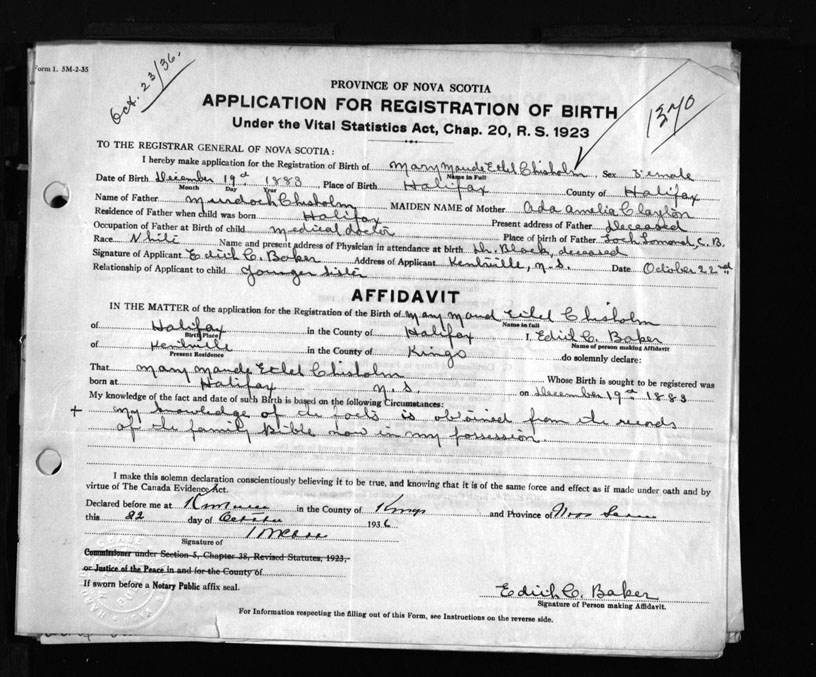 Form 1. 5M-2-35
Oct. 23/36.
1370
PROVINCE OF NOVA SCOTIA
APPLICATION FOR REGISTRATION OF BIRTH
Under the Vital Statistics Act, Chap. 20, R. S. 1923
TO THE REGISTRAR GENERAL OF NOVA SCOTIA:
I hereby make application for the Registration of Birth of Mary Maude Ethel Chisholm Sex Female
Name in Full
Date of Birth December 19th 1883, Place of Birth Halifax County of Halifax
Month Day Year
Name of Father Murdoch Chisholm MAIDEN NAME of Mother Ada Amelia Clayton
Residence of Father when child was born Halifax Present address of Father Deceased
Occupation of Father at Birth of child medical doctor Place of birth of Father Loch Lomond, C. B.
Race White Name and present address of Physician in attendance at birth Dr. Black, deceased
Signature of Applicant Edith C. Baker Address of Applicant Kentville, N. S. Date October 22nd
Relationship of Applicant to child Younger sister
AFFIDAVIT
IN THE MATTER of the application for the Registration of the Birth of Mary Maud Ethel Chisholm
Name in Full
of Halifax in the County of Halifax I, Edith C. Baker
Birth Place Name of person making Affidavit
of Kentville in the County of Kings do solemnly declare:
Present Residence
That Mary Maude Ethel Chisholm Whose Birth is sought to be registered was
born at Halifax N. S. on December 19th 1883
My knowledge of the fact and date of such Birth is based on the following Circumstances:
+ My knowledge of the facts is obtained from the records
of the family Bible now in my possession.
I make this solemn declaration conscientiously believing it to be true, and knowing that it is of the same force and effect as if made under oath and by
virtue of The Canada Evidence Act.
Declared before me at Kentville in the County of Kings and Province of Nova Scotia
this 22 day of October 1936
Signature of
Commissioner under Section 5, Chapter 38, Revised Statutes, 1923,
or Justice of the Peace in and for the County of
If sworn before a Notary Public affix seal.
Edith C. Baker
Signature of Person making Affidavit.
For Information respecting the filling out of this Form, see Instructions on the reverse side.